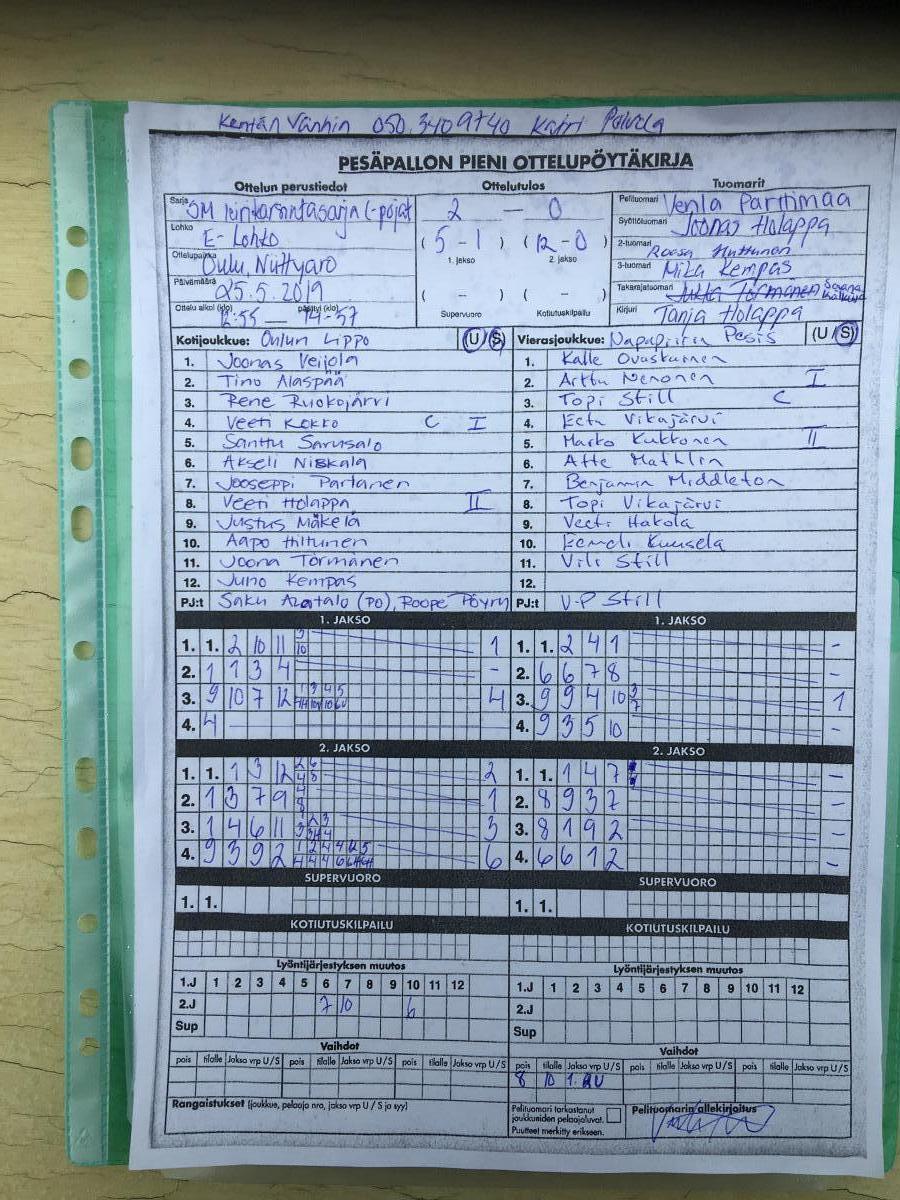 Kentän vanhin 050 3409740 Katri Palvela
PESÄPALLON PIENI OTTELUPÖYTÄKIRJA
Ottelun perustiedot Ottelutulos Tuomarit
Sarja
Lohko E-Lohko
Ottelupaikka Oulu,
Päivämäärä 25.5.2019
Ottelu alkoi (klo) 12:55 — päättyi (klo) 14-57
2 — 0
( 5 - 1 ) ( 12 - 0 )
1. jakso 2. jakso
( – ) ( – )
Supervuoro Kotiutuskilpailu
Pelituomari Venla Parttimaa
Syöttötuomari Joonas Holappa
2-tuomari Roosa Huttunen
3-tuomari Mika Kempas
Takarajatuomari Jukka Törmänen
Kirjuri Tanja Holappa
Kotijoukkue: Oulun Lippo (U/S) Vierasjoukkue: Napapiirin Pesis (U/S)
1. Joonas Veijola 1. Kalle Ovaskainen
2. Timo Alaspää 2. Arttu Nenonen I
3. Rene Ruokojärvi 3. Topi Still C
4. Veeti Kokko C I 4. Eetu Vikajärvi
5. Santtu Sarusalo 5. Marko Kukkonen II
6. Akseli Niskala 6. Atte Mathlin
7. Jooseppi Partanen 7. Benjamin Middleton
8. Veeti Holappa II 8. Topi Vikajärvi
9. Justus Mäkelä 9. Veeti Hakola
10. Aapo Hiltunen 10. Eemeli Kuusela
11. Joona Törmänen 11. Vili Still
12. Juno Kempas 12.
PJ:t Saku Alatalo (PO), Roope Pöyry PJ:t V-P Still
1. JAKSO 1. JAKSO
1. 1. 2 10 11 3 10 1 1. 1. 2 4 1 -
2. 1 1 3 4 - 2. 6 6 7 8 -
3. 9 10 7 12 4 3. 9 9 4 10 3 7 1
4. 4 4. 9 3 5 10 -
2. JAKSO 2. JAKSO
1. 1. 1 3 12 2 6 4 8 2 1. 1. 1 4 7 -
2. 1 3 7 9 4 8 1 2. 8 9 3 7 -
3. 1 4 6 11 3 3. 8 1 9 2 -
4. 9 3 9 2 6 4. 6 6 1 2 -
SUPERVUORO SUPERVUORO
1. 1. 1. 1.
KOTIUTUSKILPAILU KOTIUTUSKILPAILU
Lyöntijärjestyksen muutos Lyöntijärjestyksen muutos
1.J 1 2 3 4 5 6 7 8 9 10 11 12 1.J 1 2 3 4 5 6 7 8 9 10 11 12
2.J 7 10 6 2.J
Sup Sup
Vaihdot Vaihdot
pois tilalle Jakso vrp U/S pois tilalle Jakso vrp U/S pois tilalle Jakso vrp U/S pois tilalle Jakso vrp U/S pois tilalle Jakso vrp U/S pois tilalle Jakso vrp U/S
8 10 1. 2U
Rangaistukset (joukkue, pelaaja nro, jakso vrp U / S ja syy)
Pelituomari tarkastanut
joukkueiden pelaajaluvat.
Puutteet merkitty erikseen.
Pelituomarin allekirjoitus